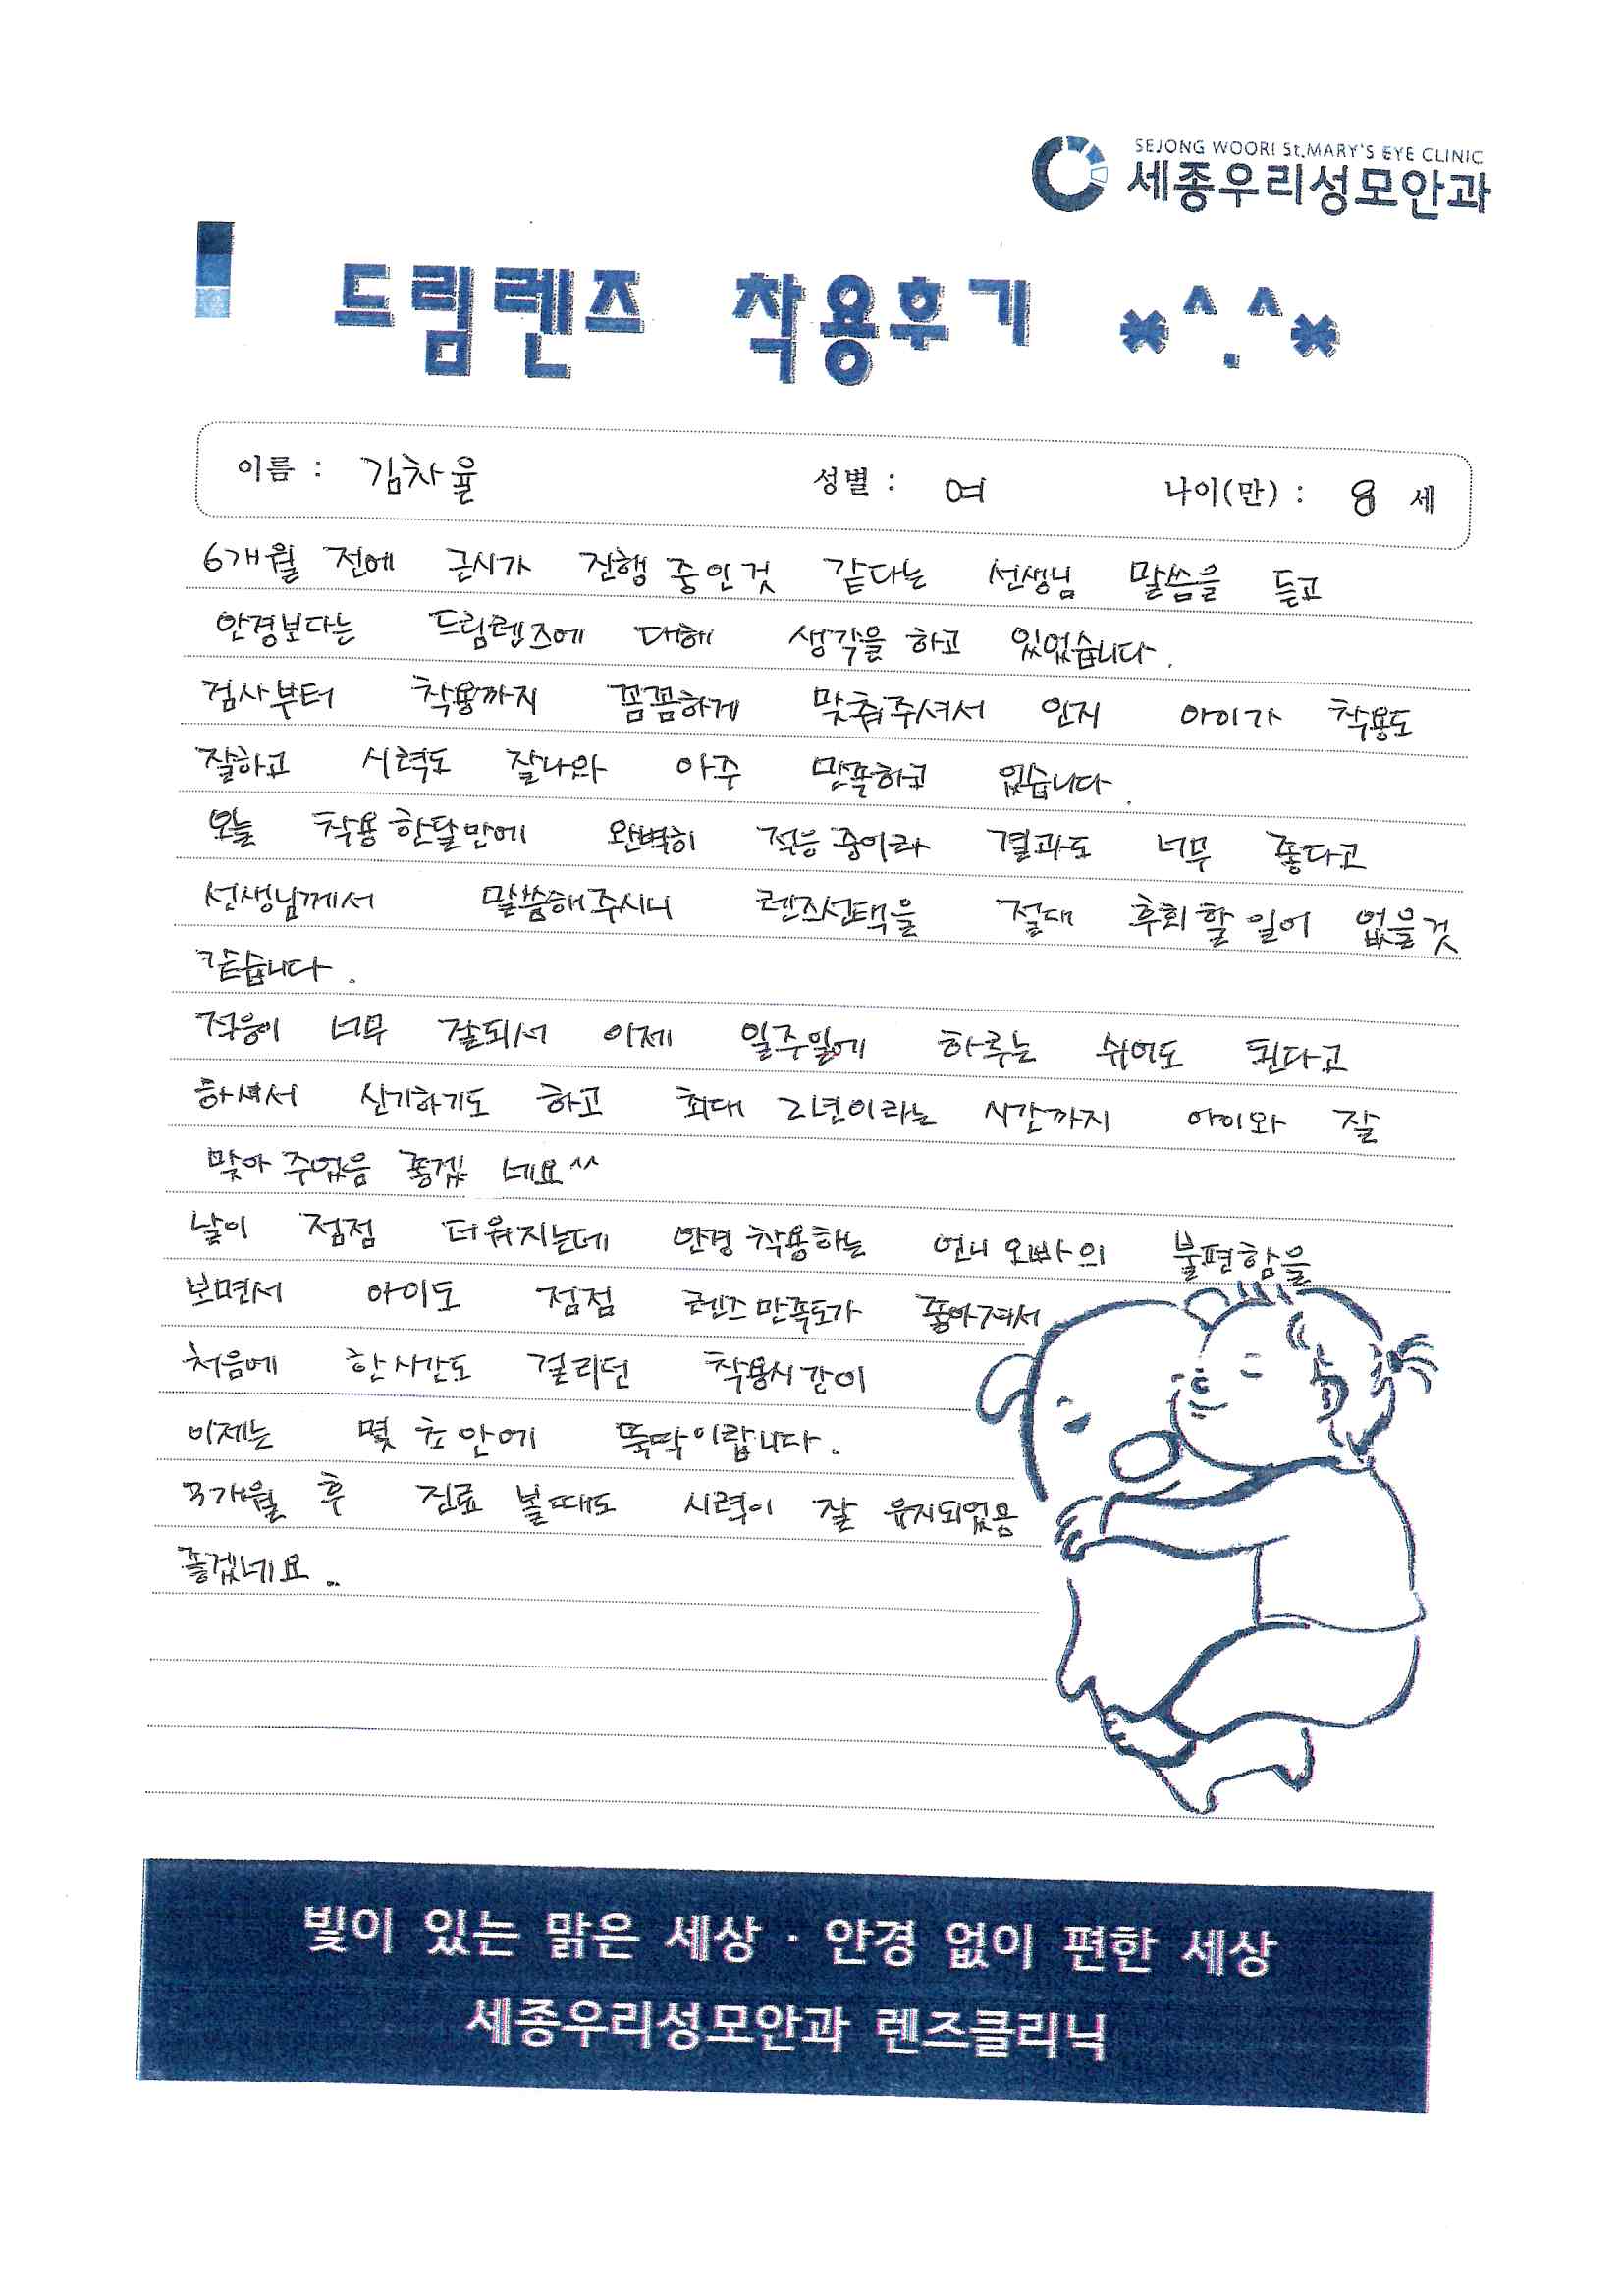 SEJONG WOORI St.MARY'S EYE CLINIC
세종우리성모안과
드림렌즈 착용후기 *^.^*
이름 : 김차율 성별 : 여 나이(만) : 8 세
6개월 전에 근시가 진행 중인것 같다는 선생님 말씀을 듣고
안경보다는 드림렌즈에 대해 생각을 하고 있었습니다.
검사부터 착용까지 꼼꼼하게 맞춰주셔서 인지 아이가 착용도
잘하고 시력도 잘나와 아주 만족하고 있습니다.
오늘 착용 한달만에 완벽히 적응 중이라 결과도 너무 좋다고
선생님께서 말씀해주시니 렌즈선택을 절대 후회 할 일이 없을것
같습니다.
적응이 너무 잘되서 이제 일주일에 하루는 쉬어도 된다고
하셔서 신기하기도 하고 최대 2년이라는 시간까지 아이와 잘
맞아 주었음 좋겠 네요^^
날이 점점 더워지는데 안경 착용하는 언니 오빠의 불편함을
보면서 아이도 점점 렌즈 만족도가 좋아져서
처음에 한시간도 걸리던 착용시간이
이제는 몇 초 안에 뚝딱이랍니다.
3개월 후 진료 볼때도 시력이 잘 유지되었음
좋겠네요..
빛이 있는 맑은 세상 · 안경 없이 편한 세상
세종우리성모안과 렌즈클리닉